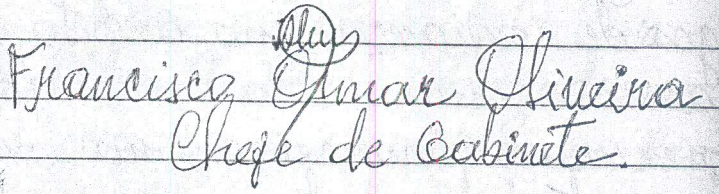 Francisco Osmar Oliveira
Chefe de Gabinete.